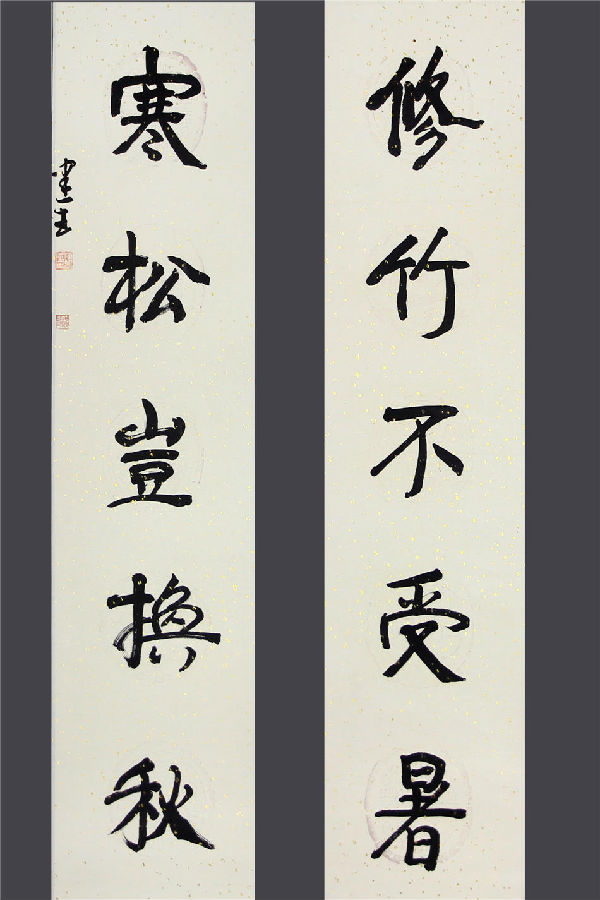 修竹不受暑
寒松豈換秋